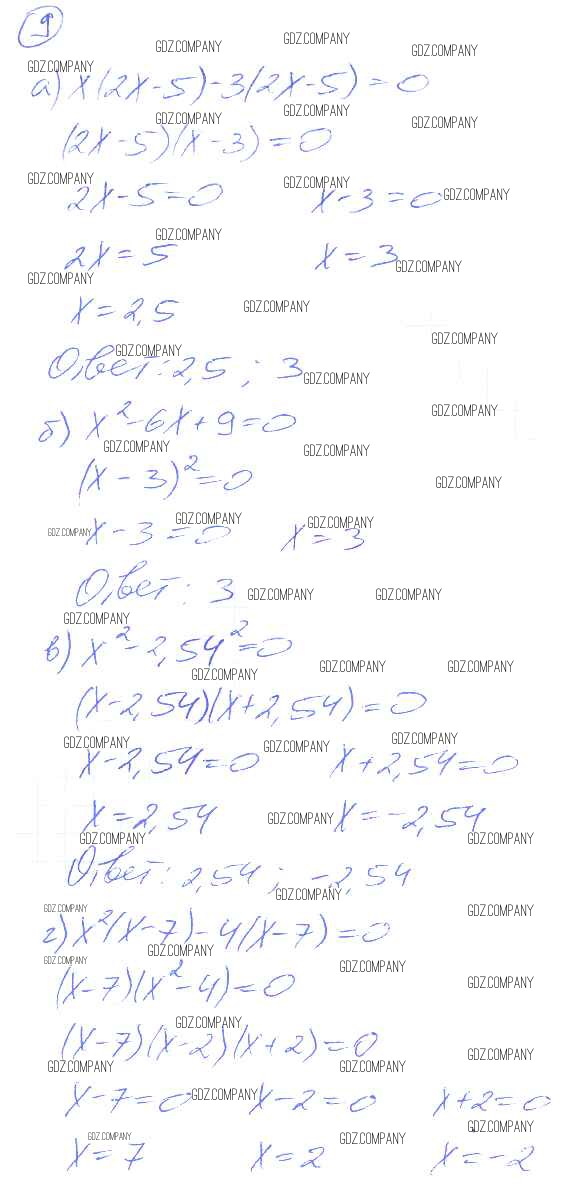 9
GDZ.COMPANY GDZ.COMPANY GDZ.COMPANY
GDZ.COMPANY
а) x(2x-5)-3(2x-5)=0
GDZ.COMPANY GDZ.COMPANY GDZ.COMPANY
(2x-5)(x-3)=0
GDZ.COMPANY GDZ.COMPANY GDZ.COMPANY
2x-5=0 x-3=0
GDZ.COMPANY
2x=5 x=3
GDZ.COMPANY GDZ.COMPANY
x=2,5 GDZ.COMPANY
GDZ.COMPANY GDZ.COMPANY
Ответ: 2,5 ; 3 GDZ.COMPANY
б) x²-6x+9=0 GDZ.COMPANY
GDZ.COMPANY GDZ.COMPANY
(x-3)²=0 GDZ.COMPANY
GDZ.COMPANY GDZ.COMPANY GDZ.COMPANY
x-3=0 x=3
Ответ: 3 GDZ.COMPANY GDZ.COMPANY
GDZ.COMPANY
в) x²-2,54²=0
GDZ.COMPANY GDZ.COMPANY GDZ.COMPANY
(x-2,54)(x+2,54)=0
GDZ.COMPANY GDZ.COMPANY GDZ.COMPANY
x-2,54=0 x+2,54=0
x=2,54 GDZ.COMPANY x=-2,54
GDZ.COMPANY GDZ.COMPANY
Ответ: 2,54 ; -2,54
GDZ.COMPANY
GDZ.COMPANY GDZ.COMPANY
г) x²(x-7)-4(x-7)=0
GDZ.COMPANY GDZ.COMPANY GDZ.COMPANY
(x-7)(x²-4)=0 GDZ.COMPANY
GDZ.COMPANY
(x-7)(x-2)(x+2)=0 GDZ.COMPANY
GDZ.COMPANY GDZ.COMPANY GDZ.COMPANY
x-7=0 x-2=0 x+2=0
GDZ.COMPANY GDZ.COMPANY GDZ.COMPANY
x=7 x=2 x=-2